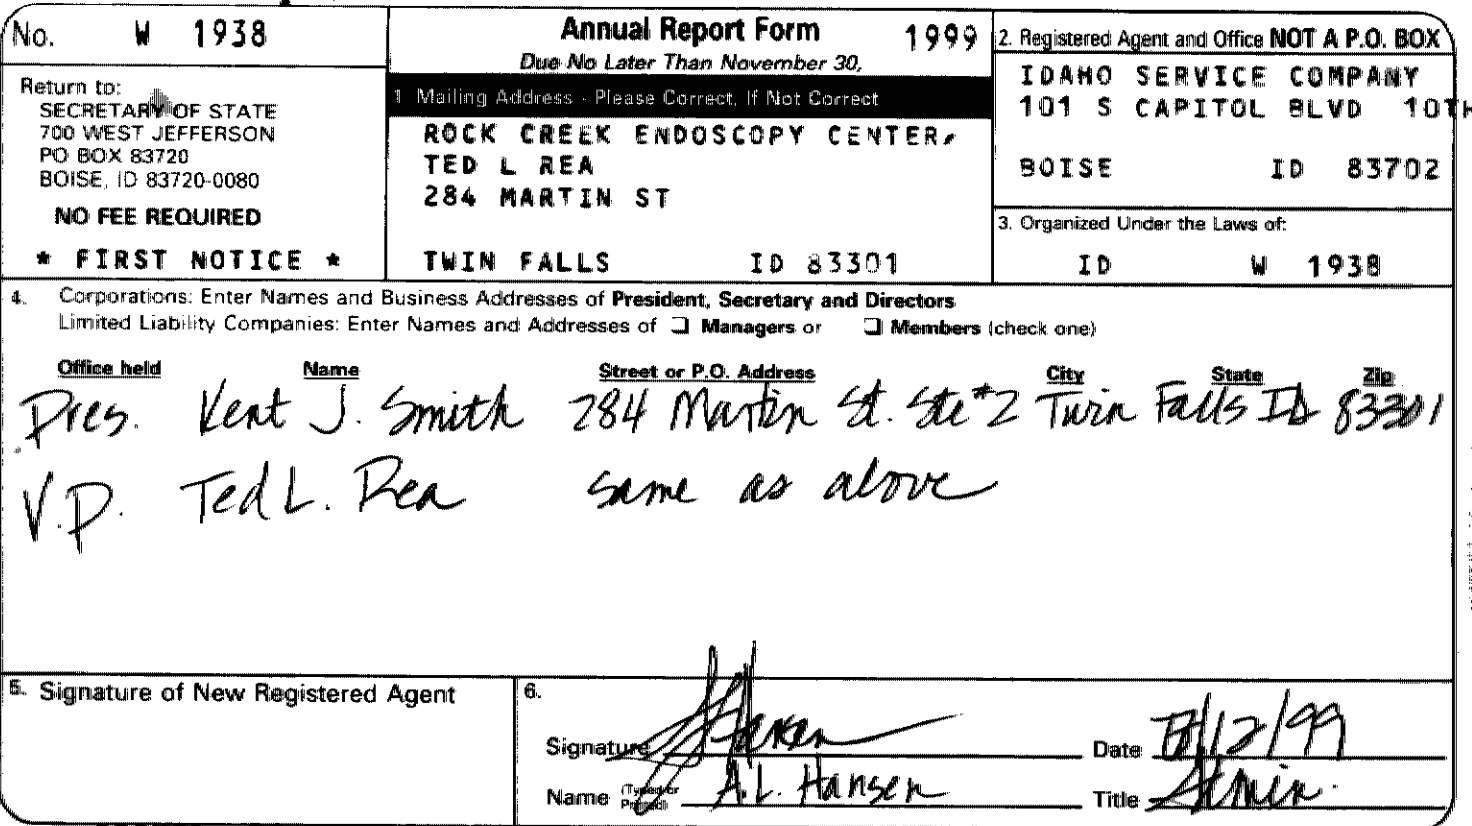 No. W 1938
Annual Report Form 1999
Due No Later Than November 30,
Return to:
SECRETARY OF STATE
700 WEST JEFFERSON
PO BOX 83720
BOISE, ID 83720-0080
NO FEE REQUIRED
* FIRST NOTICE *
1 Mailing Address - Please Correct, If Not Correct
ROCK CREEK ENDOSCOPY CENTER,
TED L REA
284 MARTIN ST
TWIN FALLS ID 83301
2. Registered Agent and Office NOT A P.O. BOX
IDAHO SERVICE COMPANY
101 S CAPITOL BLVD 10TH
BOISE ID 83702
3. Organized Under the Laws of:
ID W 1938
4. Corporations: Enter Names and Business Addresses of President, Secretary and Directors
Limited Liability Companies: Enter Names and Addresses of ❏ Managers or ❏ Members (check one)
Office held Name Street or P.O. Address City State Zip
Pres. Kent J. Smith 284 Martin St. Ste #2 Twin Falls Id 83301
V.P. Ted L. Rea same as above
5. Signature of New Registered Agent
6.
Signature Hansen Date /12/99
Name (Typed or Printed) A.L. Hansen Title Admin.